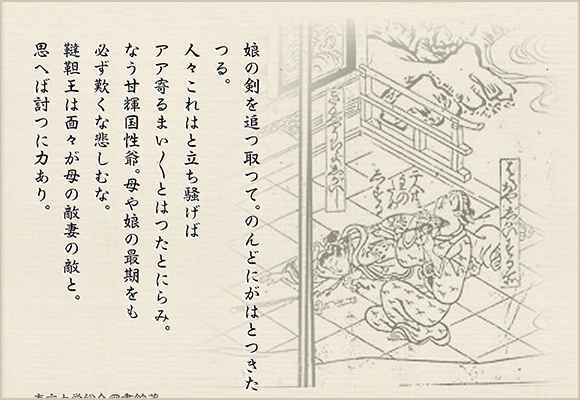 娘の剣を追つ取つて。のんどにがはとつきた
つる。
人々これはと立ち騒げば
アア寄るまい〳〵とはつたとにらみ。
なう甘輝国性爺。母や娘の最期をも
必ず歎くな悲しむな。
韃靼王は面々が母の敵妻の敵と。
思へば討つに力あり。